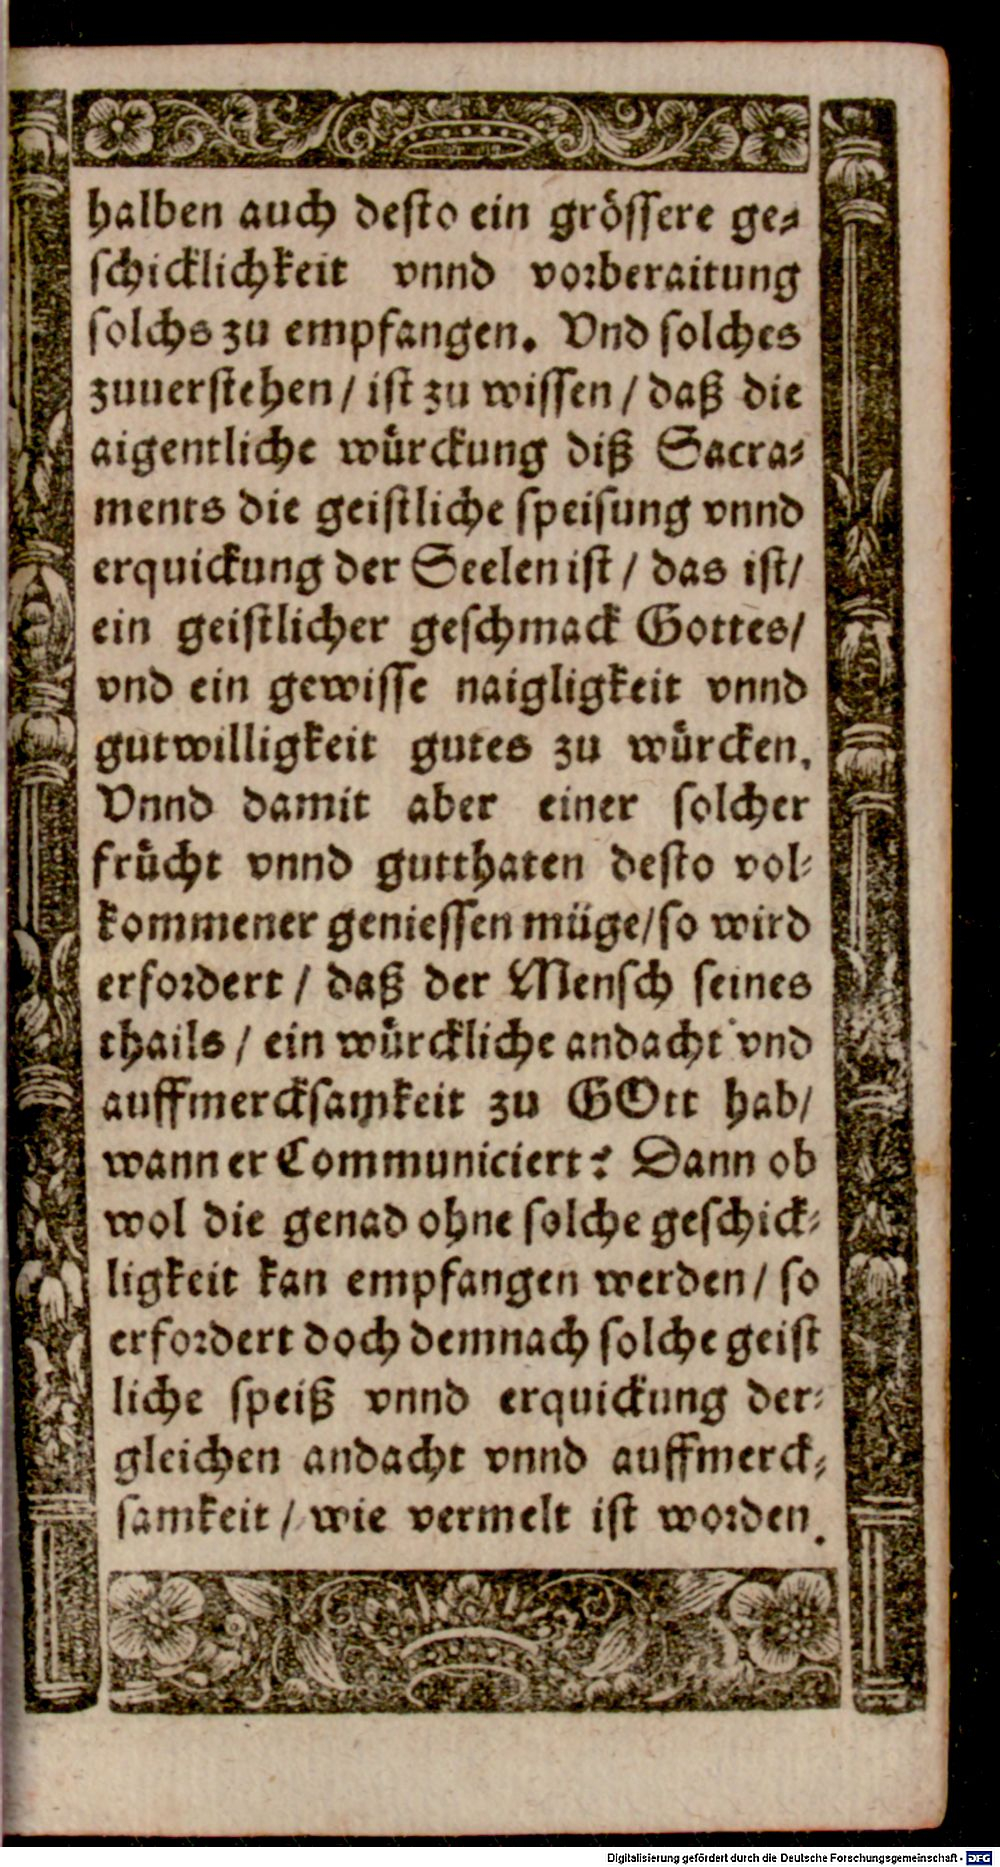 halben auch desto ein grössere ge-
schicklichkeit vnnd vorberaitung
solchs zu empfangen. Vnd solches
zuuerstehen / ist zu wissen / daß die
aigentliche würckung diß Sacra-
ments die geistliche speisung vnnd
erquickung der Seelen ist / das ist/
ein geistlicher geschmack Gottes/
vnd ein gewisse naigligkeit vnnd
gutwilligkeit gutes zu würcken.
Vnnd damit aber einer solcher
frücht vnnd gutthaten desto vol-
kommener geniessen müge/so wird
erfordert / daß der Mensch seines
thails / ein würckliche andacht vnd
auffmercksamkeit zu GOtt hab/
wann er Communiciert: Dann ob
wol die genad ohne solche geschick-
ligkeit kan empfangen werden / so
erfordert doch demnach solche geist
liche speiß vnnd erquickung der-
gleichen andacht vnnd auffmerck-
samkeit / wie vermelt ist worden.
Digitalisierung gefördert durch die Deutsche Forschungsgemeinschaft - DFG